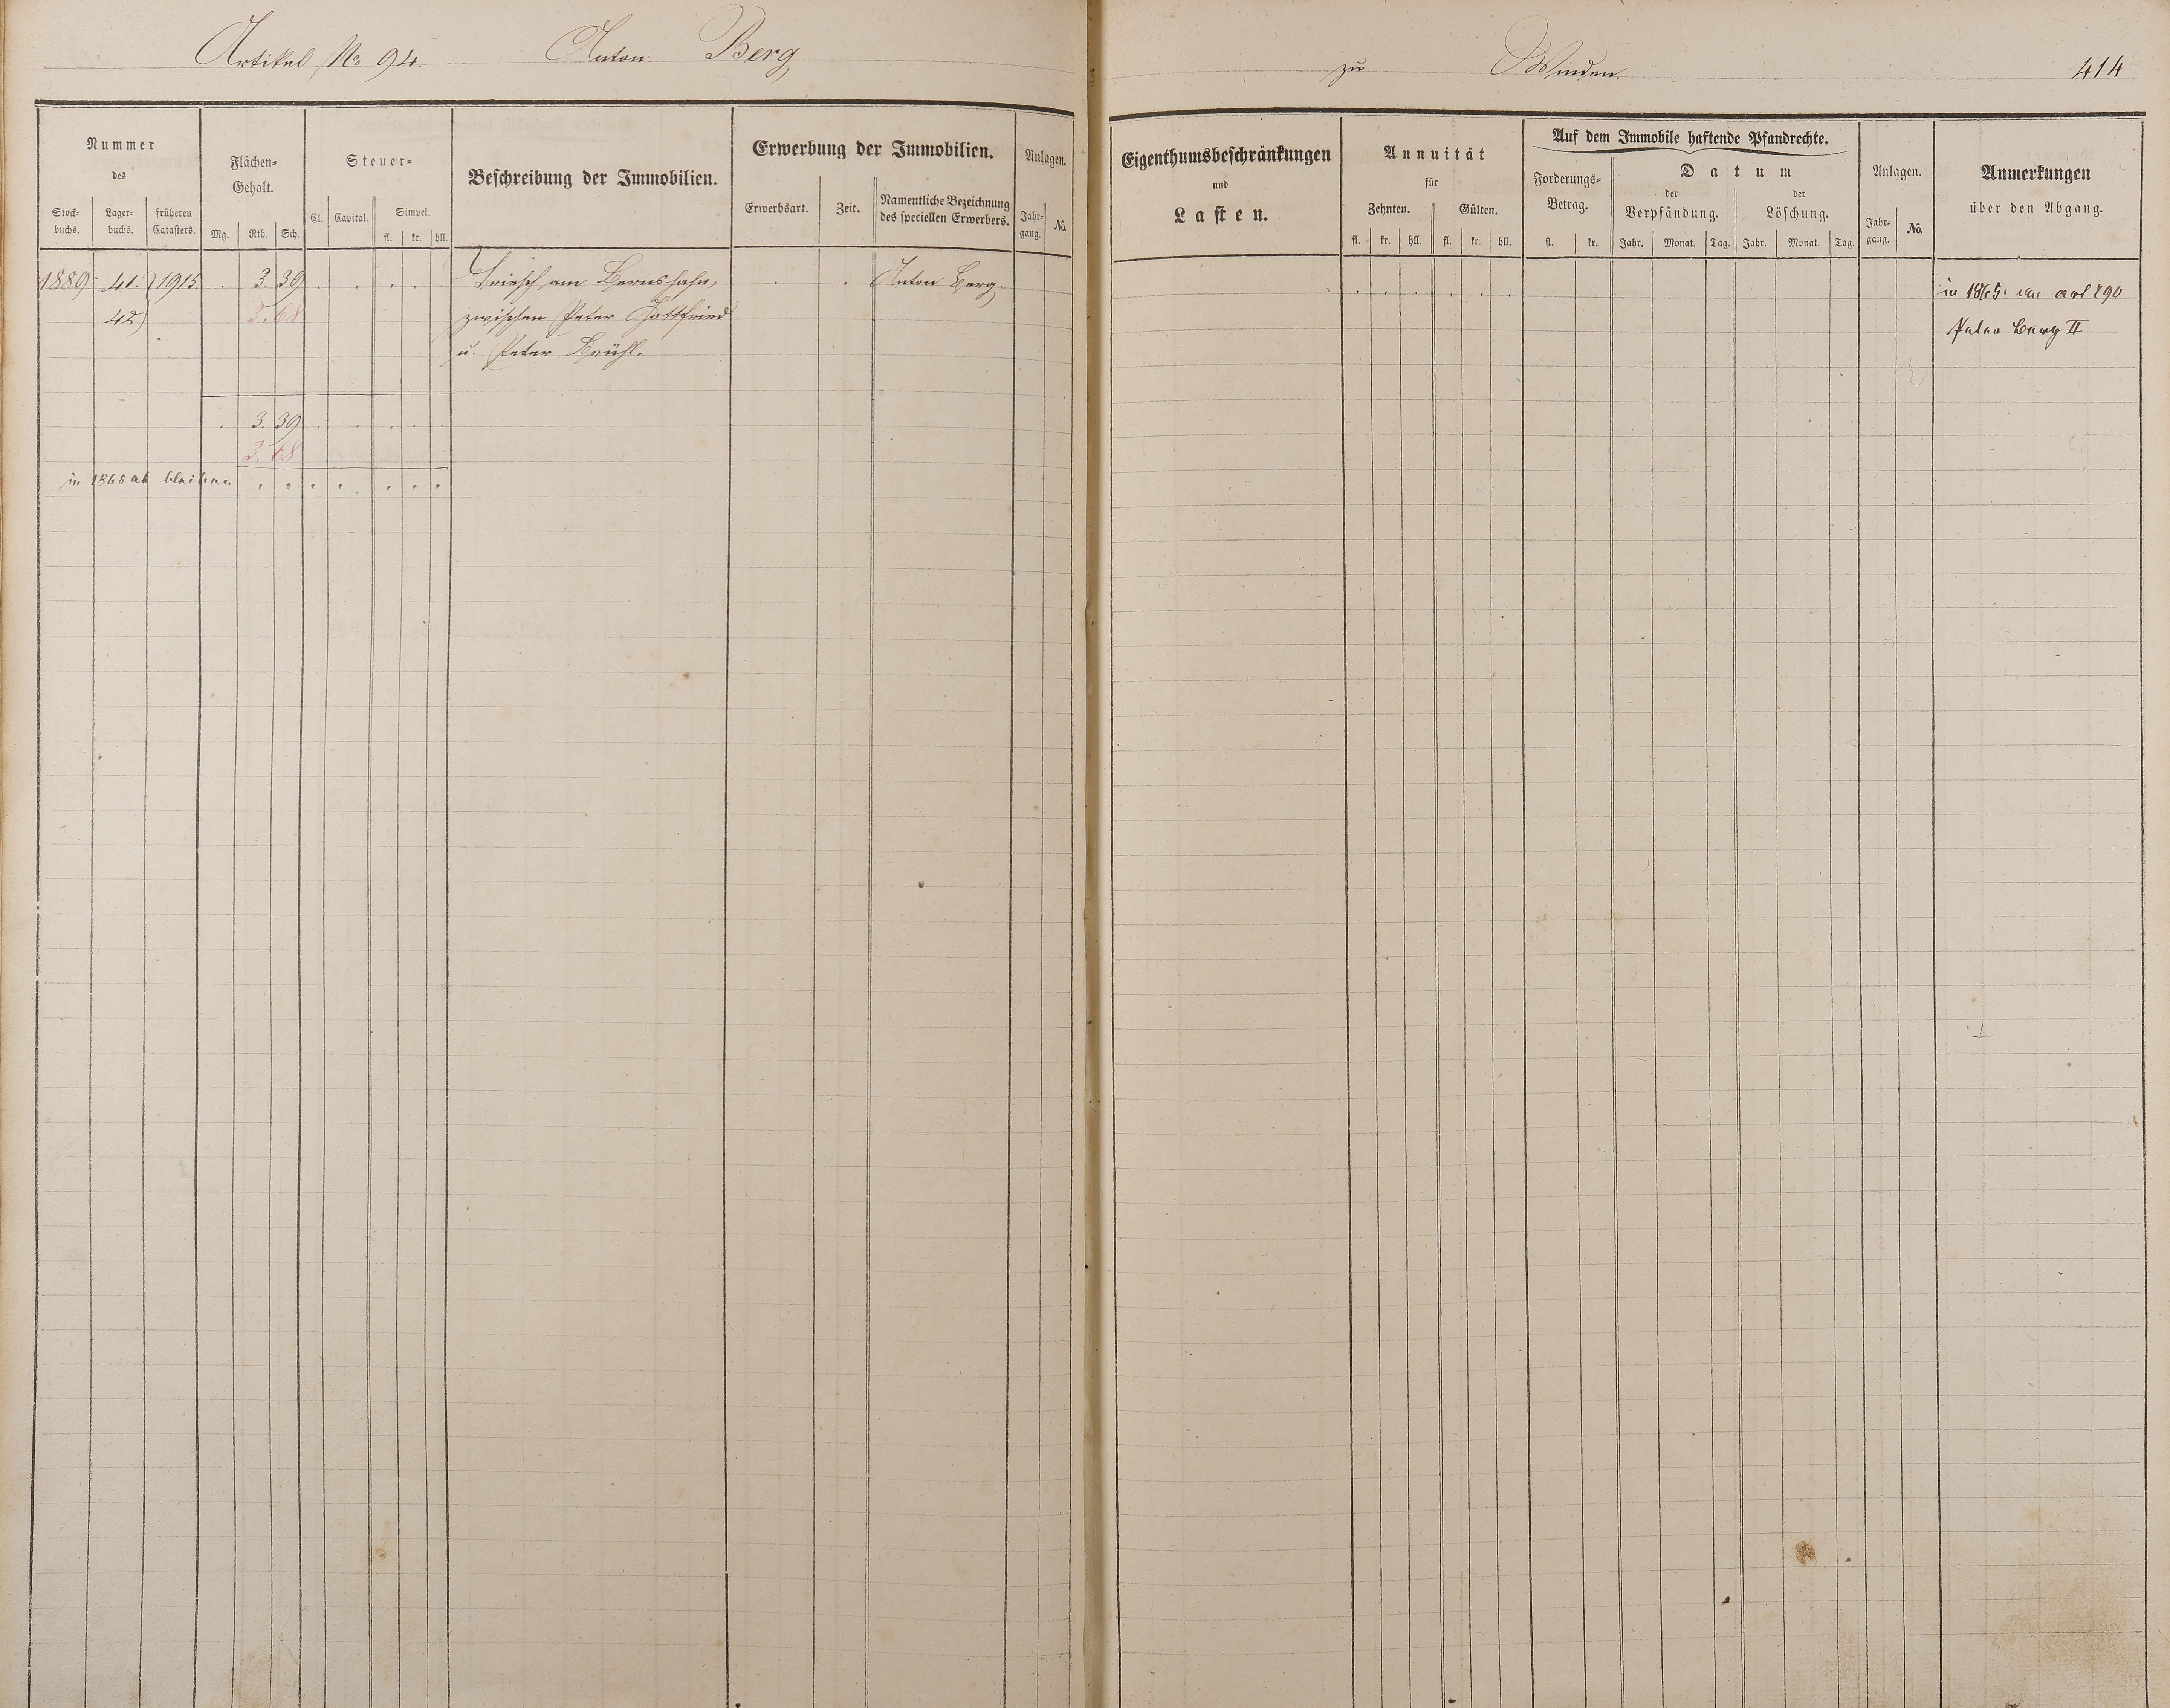 Artikel No 94. Anton Berg zu Winden. 414
Nummer
des
Stock-
buchs.
Lager-
buchs.
früheren
Catasters.
Flächen-
Gehalt.
Mg. Rth. Sch.
Steuer-
Cl. Capital. Simpel.
fl. kr. hll.
Beschreibung der Immobilien.
Erwerbung der Immobilien.
Erwerbsart. Zeit. Namentliche Bezeichnung
des speciellen Erwerbers.
Anlagen.
Jahr-
gang. No.
Eigenthumsbeschränkungen
und
Lasten.
Annuität
für
Zehnten. Gülten.
fl. kr. hll. fl. kr. hll.
Auf dem Immobile haftende Pfandrechte.
Forderungs-
Betrag.
fl. kr.
Datum
der
Verpfändung.
der
Löschung.
Jahr. Monat. Tag. Jahr. Monat. Tag.
Anlagen.
Jahr-
gang. No.
Anmerkungen
über den Abgang.
1889 41. 1915. . 3. 39 . . . . . Triesch am Bernshahn, . . Anton Berg. in 1865 an art 290
42) 3. 68 zwischen Peter Gottfried Peter Berg II
u. Peter Brühl.
. 3. 39 . . . . .
3. 68
in 1865 ab bleiben . . . . . . .